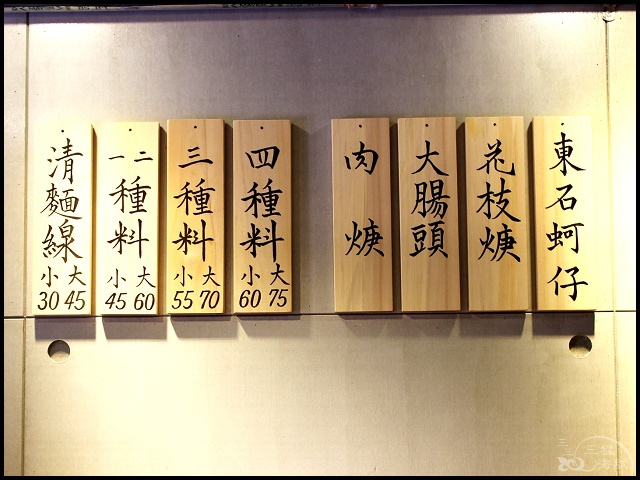 東石蚵仔
花枝焿
大腸頭
肉焿
四種料
小 大
60 75
三種料
小 大
55 70
一二種料
小 大
45 60
清麵線
小 大
30 45